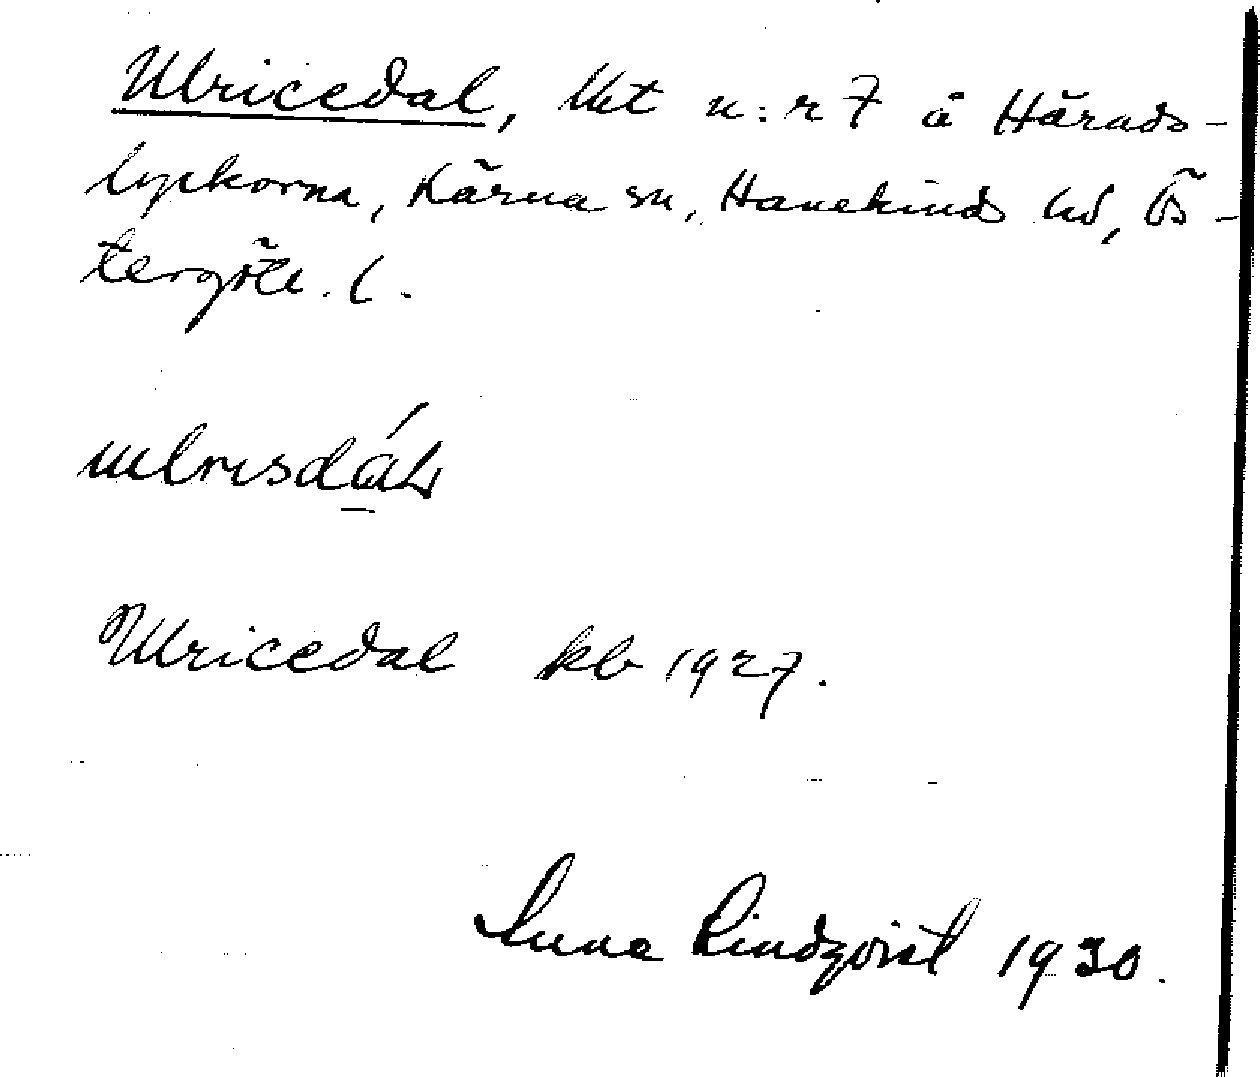 Ulricedal, lht n:r 7 å Härads-
lyckorna, Kärna sn, Hanekinds hd, Ös-
tergötl. l.
Ulricedal kb 1927.
Sune Lindqvist 1930.